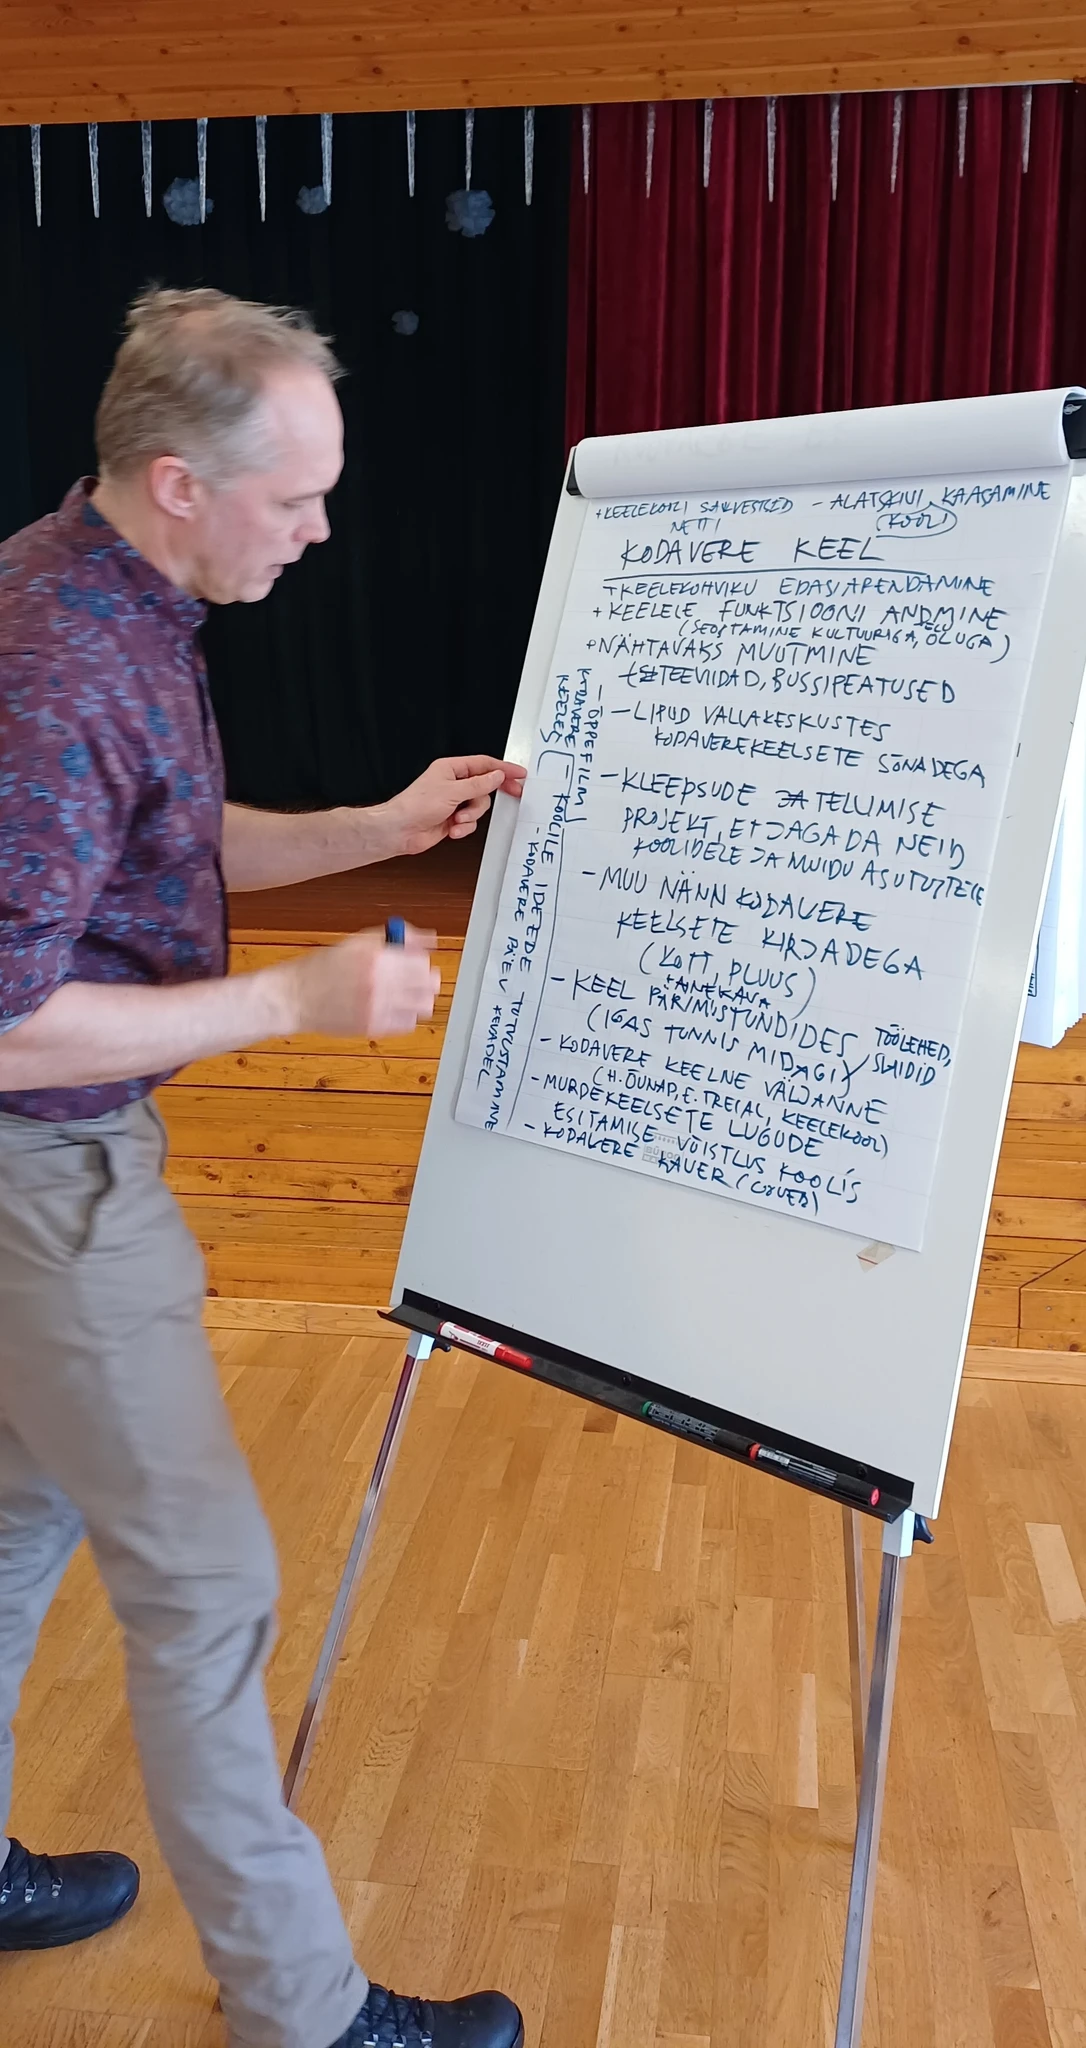 +KEELEKOOLI SALVESTISED - ALATSKIVI KAASAMINE
NETTI (KOOLI)
KODAVERE KEEL
+KEELEKOHVIKU EDASIARENDAMINE
+ KEELELE FUNKTSIOONI ANDMINE
(SEOSTAMINE KULTUURIGA, ELU OLUGA)
+NÄHTAVAKS MUUTMINE
- TEEVIIDAD, BUSSIPEATUSED
- LIPUD VALLAKESKUSTES
KODAVEREKEELSETE SÕNADEGA
- KLEEPSUDE TELLIMISE
PROJEKT, ET JAGADA NEID
KOOLIDELE JA MUUDU ASUTUTTELE
- MUU NÄNN KODAVERE
KEELSETE KIRJADEGA
(KOTT, PLUUS)
+AINEKAVA
- KEEL PÄRIMISTUNDIDES TÖÖLEHED,
(IGAS TUNNIS MIDAGI) SLAIDID
- KODAVERE KEELNE VÄLJANNE
(H. ÕUNAP, E. TREIAL, KEELEKOOL)
- MURDEKEELSETE LUGUDE
ESITAMISE VÕISTLUS KOOLIS
- KODAVERE KAVER (COVER)
- ÕPPEFILM
KODAVERE
KEELES
- KOOLILE IDEEDE TUTVUSTAMINE
- KODAVERE PÄEV KEVADEL